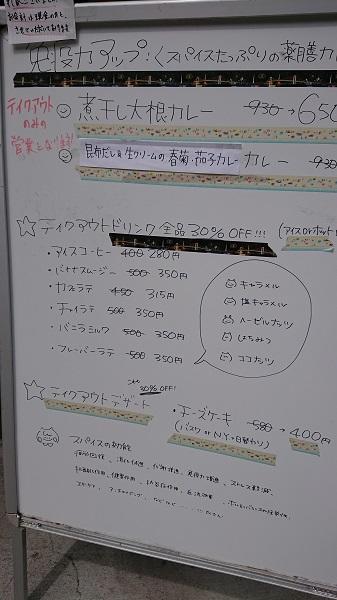 お会計は現金のみと
させて頂いております
免疫力アップ!くスパイスたっぷりの薬膳カ
テイクアウト
のみの
営業となります!
煮干し大根カレー 930→650
昆布だし&生クリームの春菊・茄子カレー カレー 930
☆テイクアウトドリンク全品30%OFF!!! (アイスorホット
・アイスコーヒー 400 280円
・バナナスムージー 500 350円
・カフェラテ 450 315円
・チャイラテ 500 350円
・バニラミルク 500 350円
・フレーバーラテ 500 350円
キャラメル
塩キャラメル
ヘーゼルナッツ
はちみつ
ココナッツ
30%OFF!
☆テイクアウトデザート
・チーズケーキ 580→400円
(バスクorNY→日替わり)
スパイスの効能
疲労回復、消化促進、代謝促進、免疫力増進、ストレス軽減、